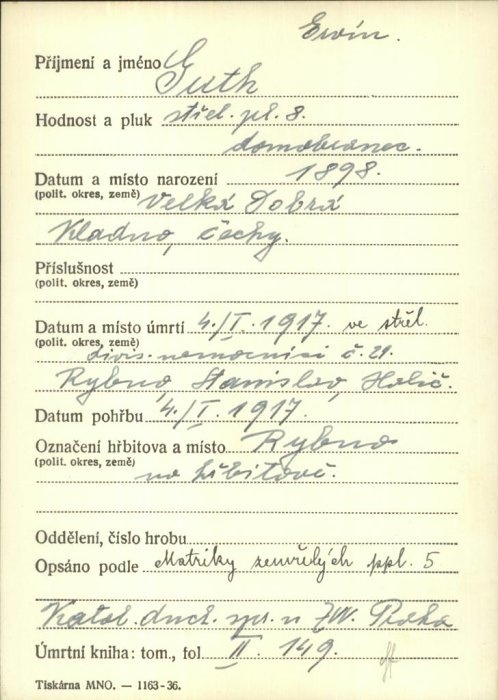 Ervín.
Příjmení a jméno Guth
Hodnost a pluk střel. pl. 8.
domobranec.
Datum a místo narození 1898.
(polit. okres, země) Velká Dobrá
Kladno, Čechy.
Příslušnost
(polit. okres, země)
Datum a místo úmrtí 4./I. 1917. ve střel.
(polit. okres, země) divis. nemocnici č. 21.
Rybno, Stanislav, Halič.
Datum pohřbu 4./I. 1917.
Označení hřbitova a místo Rybno
(polit. okres, země) na hřbitově.
Oddělení, číslo hrobu
Opsáno podle Matriky zemřelých ppl. 5
Katol. duch. spr. u ZVV. Praha
Úmrtní kniha: tom., fol. II. 149.
Tiskárna MNO. — 1163-36.